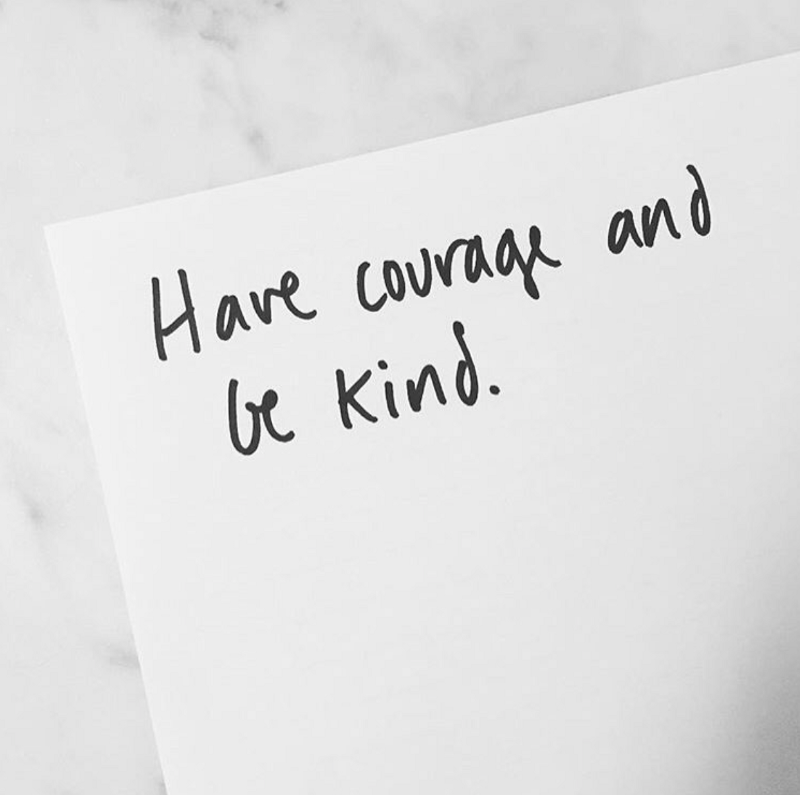 Have courage and
be kind.